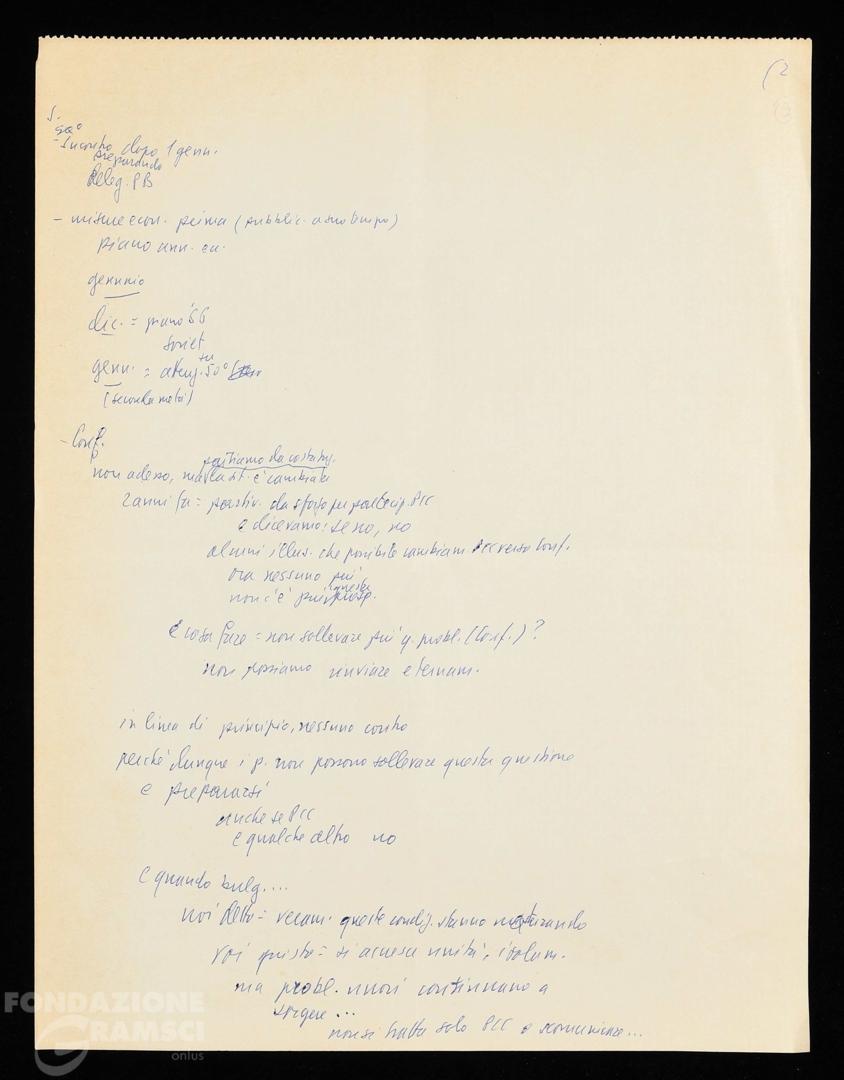 (2
13
S.
- Incontro dopo 1 genn.
preparando
Deleg. PB
- misure econ. prima (pubblic. a suo tempo)
piano ann. ec.
gennaio
dic. = piano '66
soviet
genn. = su 50°
(seconda metà)
- Conf.
partiamo da
non adesso, ma la sit. è cambiata
2 anni fa = da sforzo per partecip. PCC
e dicevamo: se no, no
alcuni illus. che possibile cambiam. PCC verso Conf.
ora nessuno più
questa
non c'è più
E cosa fare = non sollevare più q. probl. (Conf.)?
non possiamo rinviare eternam.
in linea di principio, nessuno contro
perché dunque i p. non possono sollevare questa questione
e prepararsi
anche se PCC
e qualche altro no
E quando bulg....
noi detto = queste condiz. stanno maturando
voi giusto = unità, isolam.
ma probl. nuovi continuano a
sorgere ...
non si tratta solo PCC e scomunica...
FONDAZIONE
GRAMSCI
onlus